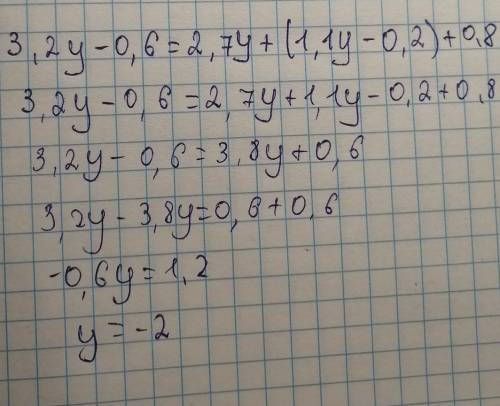 3,2y-0,6=2,7y+(1,1y-0,2)+0,8
3,2y-0,6=2,7y+1,1y-0,2+0,8
3,2y-0,6=3,8y+0,6
3,2y-3,8y=0,6+0,6
-0,6y=1,2
y=-2